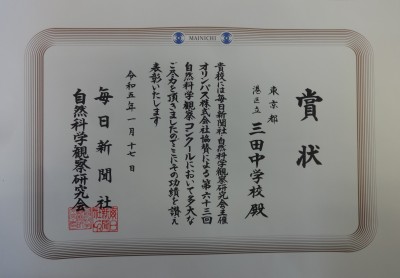 MAINICHI
賞状
東京都
港区立 三田中学校 殿
貴校には毎日新聞社・自然科学観察研究会主催
オリンパス株式会社協賛による第六十三回
自然科学観察コンクールにおいて多大な
ご尽力を頂きましたのでここにその功績を讃え
表彰いたします
令和五年一月十七日
毎日新聞社
自然科学観察研究会